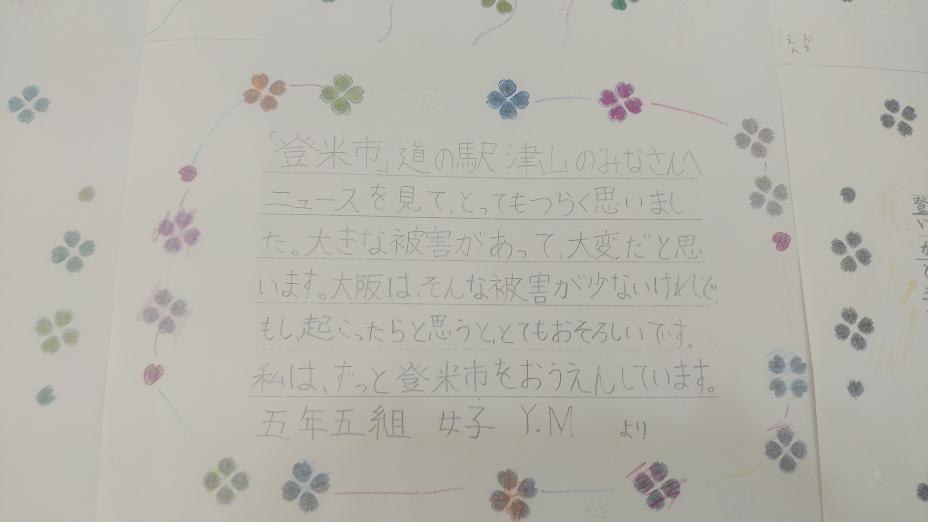 「登米市」道の駅津山のみなさんへ
ニュースを見て、とってもつらく思いまし
た。大きな被害があって、大変だと思
います。大阪は、そんな被害が少ないけれど、
もし、起こったらと思うと、とてもおそろしいです。
私は、ずっと登米市をおうえんしています。
五年五組 女子 Y.M より